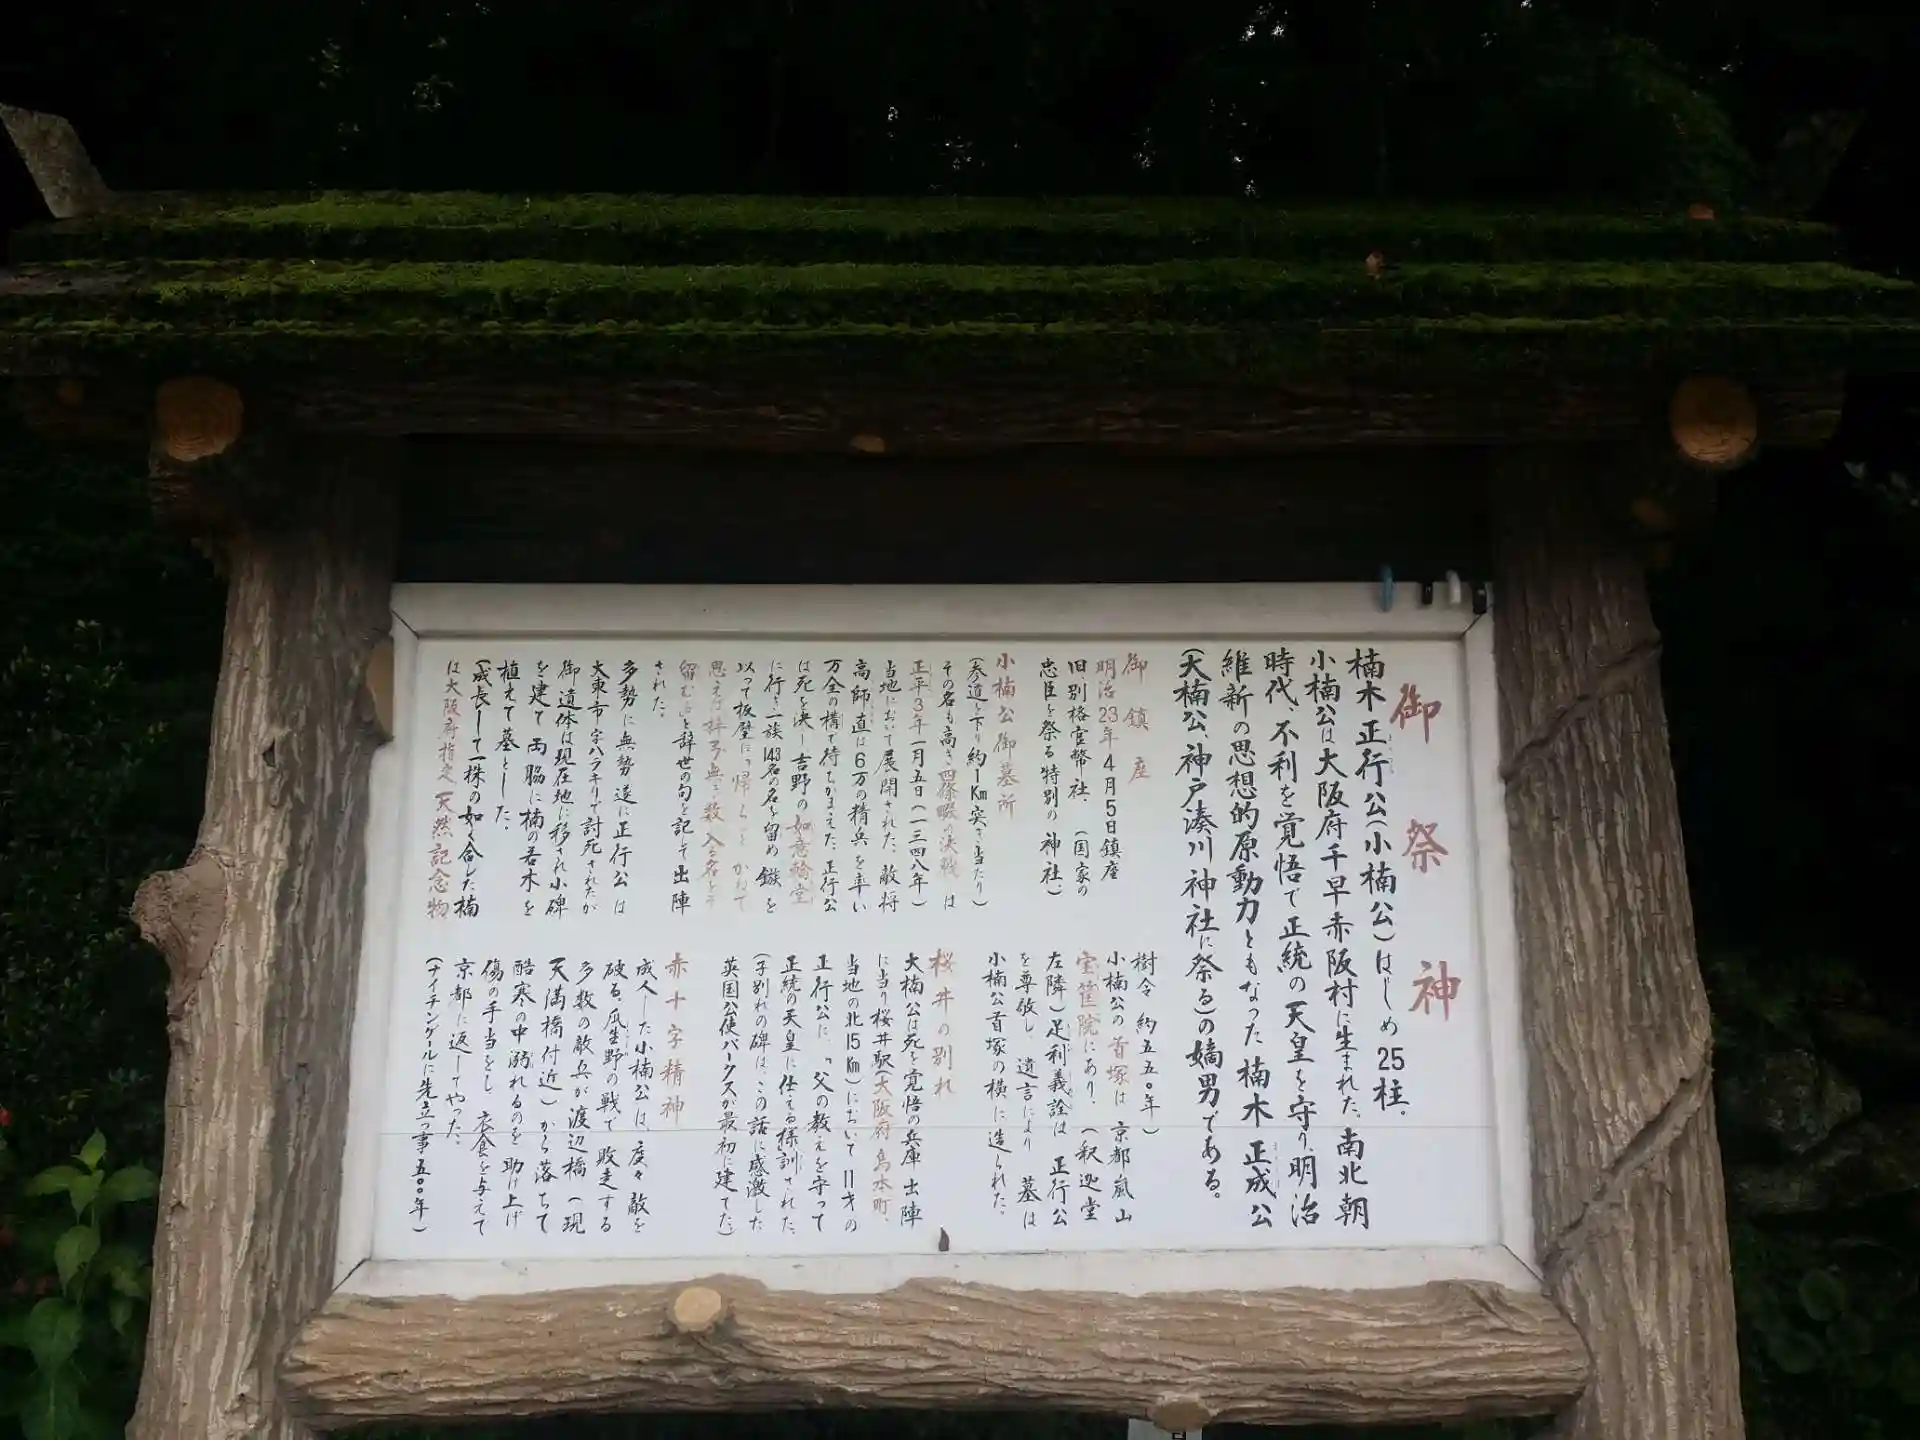 御祭神
楠木正行公(小楠公)はじめ25柱。
小楠公は大阪府千早赤阪村に生まれた。南北朝
時代、不利を覚悟で正統の天皇を守り、明治
維新の思想的原動力ともなった楠木正成公
(大楠公、神戸湊川神社に祭る)の嫡男である。
御鎮座
明治23年4月5日鎮座
旧、別格官幣社、(国家の
忠臣を祭る特別の神社。)
小楠公御墓所
(参道を下り約1Km突き当たり)
その名も高き四條畷の決戦は
正平3年一月五日(一三四八年)
当地において展開された。敵将
高師直は6万の精兵を率い
万全の構で待ちかまえた。正行公
は死を決し吉野の如意輪堂
に行き一族143名の名を留め鏃を
以って板壁に「帰らじと かねて
思えば梓弓 無き数に入る名をぞ
留むる」と辞世の句を記して出陣
された。
多勢に無勢遂に正行公は
大東市字ハラキリで討死されたが
御遺体は現在地に移され小碑
を建て両脇に楠の若木を
植えて墓とした。
(成長して一株の如く合した楠
は大阪府指定天然記念物
樹令約五五〇年)
小楠公の首塚は京都嵐山
宝筐院にあり。(釈迦堂
左隣)足利義詮は正行公
を尊敬し、遺言により墓は
小楠公首塚の横に造られた。
桜井の別れ
大楠公は死を覚悟の兵庫出陣
に当り桜井駅(大阪府島本町、
当地の北15Km)において11才の
正行公に、「父の教えを守って
正統の天皇に仕える様訓された。
(子別れの碑は、この話に感激した
英国公使パークスが最初に建てた)
赤十字精神
成人した小楠公は、度々敵を
破る。瓜生野の戦で敗走する
多数の敵兵が渡辺橋(現
天満橋付近)から落ちて
酷寒の中溺れるのを助け上げ
傷の手当をし、衣食を与えて
京都に返してやった。
(ナイチンゲールに先立つ事五〇〇年)